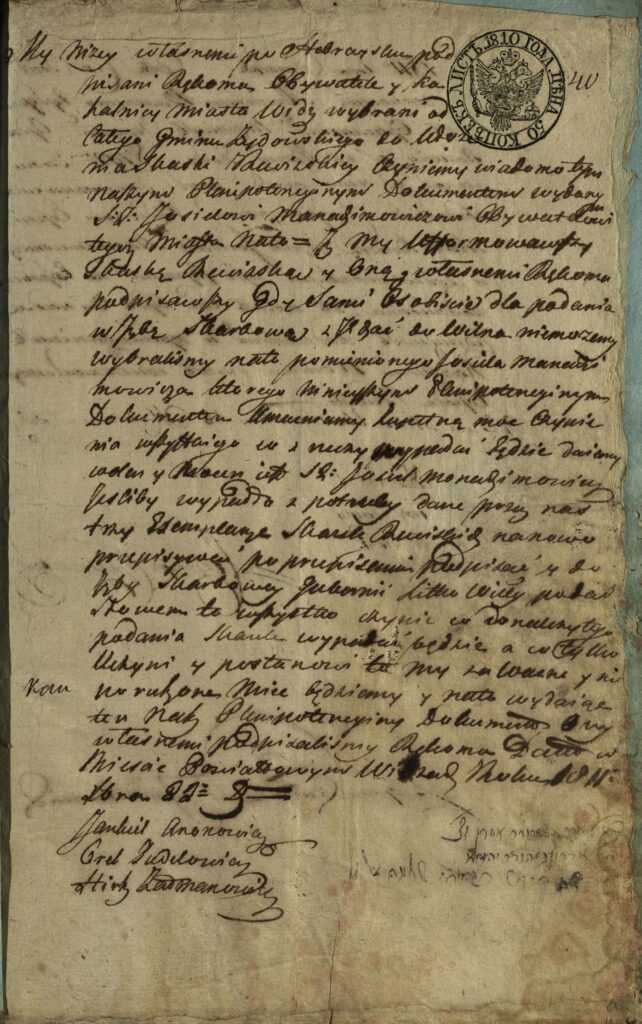 ЛИСТЪ 1810 ГОДА, ЦѢНА 50 КОПѢЕКЪ
40
My niżey własnemi po Hebraysku pod
pisani Rękoma Obywatele y Ka
halnicy Miasta Widz wybrani od
Całego Gminu do
nia Skaski Rewizskiey Czyniemy wiadomo tym
naszym Plenipotencyinym Dokumentem wydanym
Josielowi Manachimowiczowi Obywatelowi
tegoż Miasta na to = Iż My Uformowawszy
Skaskę Rewizską y Oną własnemi Rękoma
podpisawszy gdy Sami Osobiście dla podania
w Izbę Skarbową zjechać do Wilna niemożemy
wybraliśmy na to pomienionego Josiela Manachi
mowicza którego ninieyszym Plenipotencyinym
Dokumentem Umacniamy zupełną moc Czynie
nia wszystkiego co z rzeczy wypadać będzie daiemy
wolen y mocen iest Josiel Manachimowicz
Jeśliby wypadło z potrzeby dane przez nas
trzy Exemplarze Skazek Rewizskich na nowo
przepisywać po przepisaniu podpisać y do
Izby Skarbowey Gubernii Litto Wileń podać
Słowem to wszystko czynić co do należytego
podania Skazek wypadać będzie a co tylko
Uczyni y postanowi to my za ważne y nie
poruszone Mieć będziemy y na to wydaiąc
ten Nasz Plenipotencyiny Dokument Ony
własnemi podpisaliśmy Rękoma Dan w
Mieście Powiatowym Widzach Roku 1811
Jankiel Aronowicz
Orel Judelowicz
Hirsz Zalmanowicz